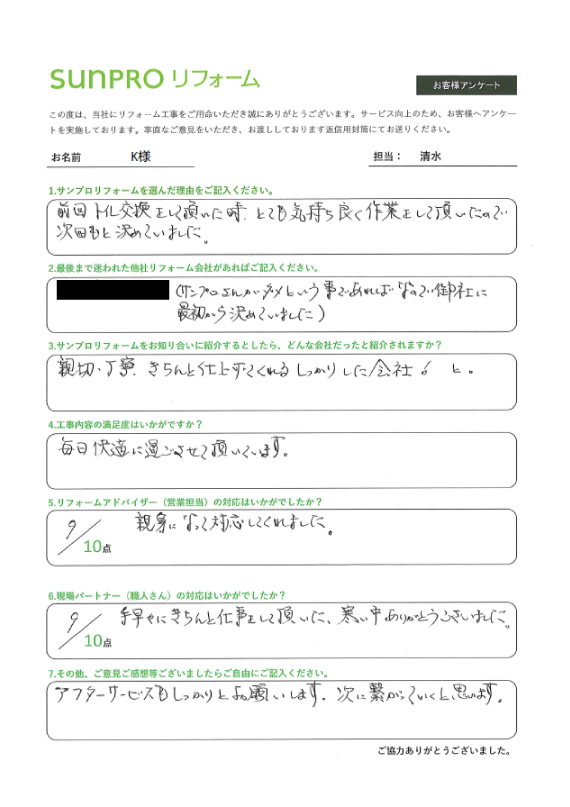 sunpro リフォーム
お客様アンケート
この度は、当社にリフォーム工事をご用命いただき誠にありがとうございます。サービス向上のため、お客様へアンケー
トを実施しております。率直なご意見をいただき、お渡ししております返信用封筒にてお送りください。
お名前 K様 担当： 清水
1.サンプロリフォームを選んだ理由をご記入ください。
前回トイレ交換をして頂いた時、とても気持ち良く作業をして頂いたので
次回もと決めていました。
2.最後まで迷われた他社リフォーム会社があればご記入ください。
(サンプロさんがダメという事であればなので御社に
最初から決めていました)
3.サンプロリフォームをお知り合いに紹介するとしたら、どんな会社だったと紹介されますか？
親切・丁寧、きちんと仕上げてくれるしっかりした会社 と。
4.工事内容の満足度はいかがですか？
毎日快適に過ごさせて頂いています。
5.リフォームアドバイザー（営業担当）の対応はいかがでしたか？
9/10点 親身になって対応してくれました。
6.現場パートナー（職人さん）の対応はいかがでしたか？
9/10点 手早やにきちんと仕事をして頂いた、寒い中ありがとうございました。
7.その他、ご意見ご感想等ございましたらご自由にご記入ください。
アフターサービスもしっかりとお願いします、次に繋がっていくと思います。
ご協力ありがとうございました。